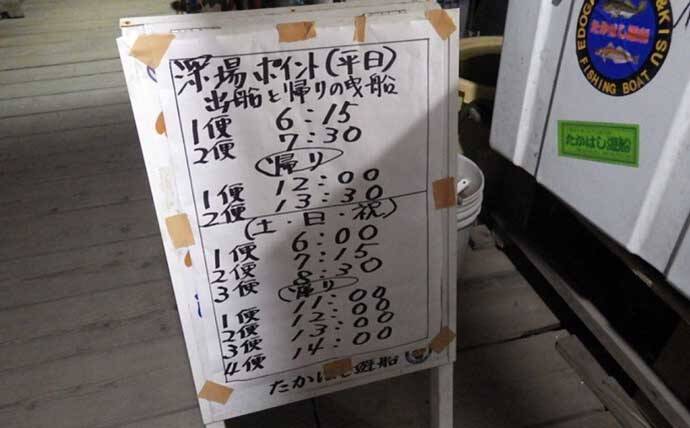 深場ポイント(平日)
出船と帰りの曳船
1便 6:15
2便 7:30
(帰り)
1便 12:00
2便 13:30
(土・日・祝)
1便 6:00
2便 7:15
3便 8:30
(帰り)
1便 11:00
2便 12:00
3便 13:00
4便 14:00
たかはし遊船
EDOGA
&KISU
たかはし遊船
FISHING BOAT
たかはし遊船